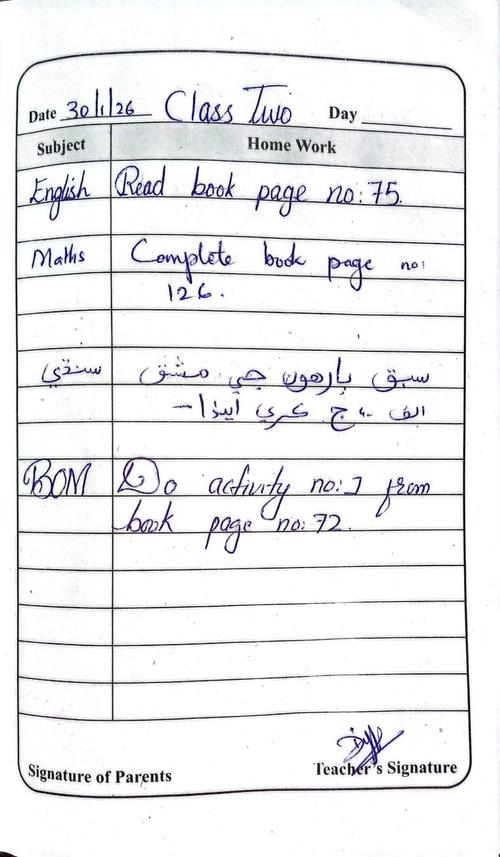 Date 30/1/26 Class Two Day
Subject Home Work
English Read book page no: 75.
Maths Complete book page no:
126.
سنڌي سبق ٻارهون جي مشق
الف ۽ ج ڪري ايندا-
BOM Do activity no: 1 from
book page no: 72.
Signature of Parents Teacher's Signature